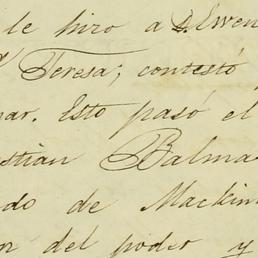 le hizo a D. Ewen
Teresa; contestó
nar. Esto pasó el
stian Balma
do de Mackin
n del poder y